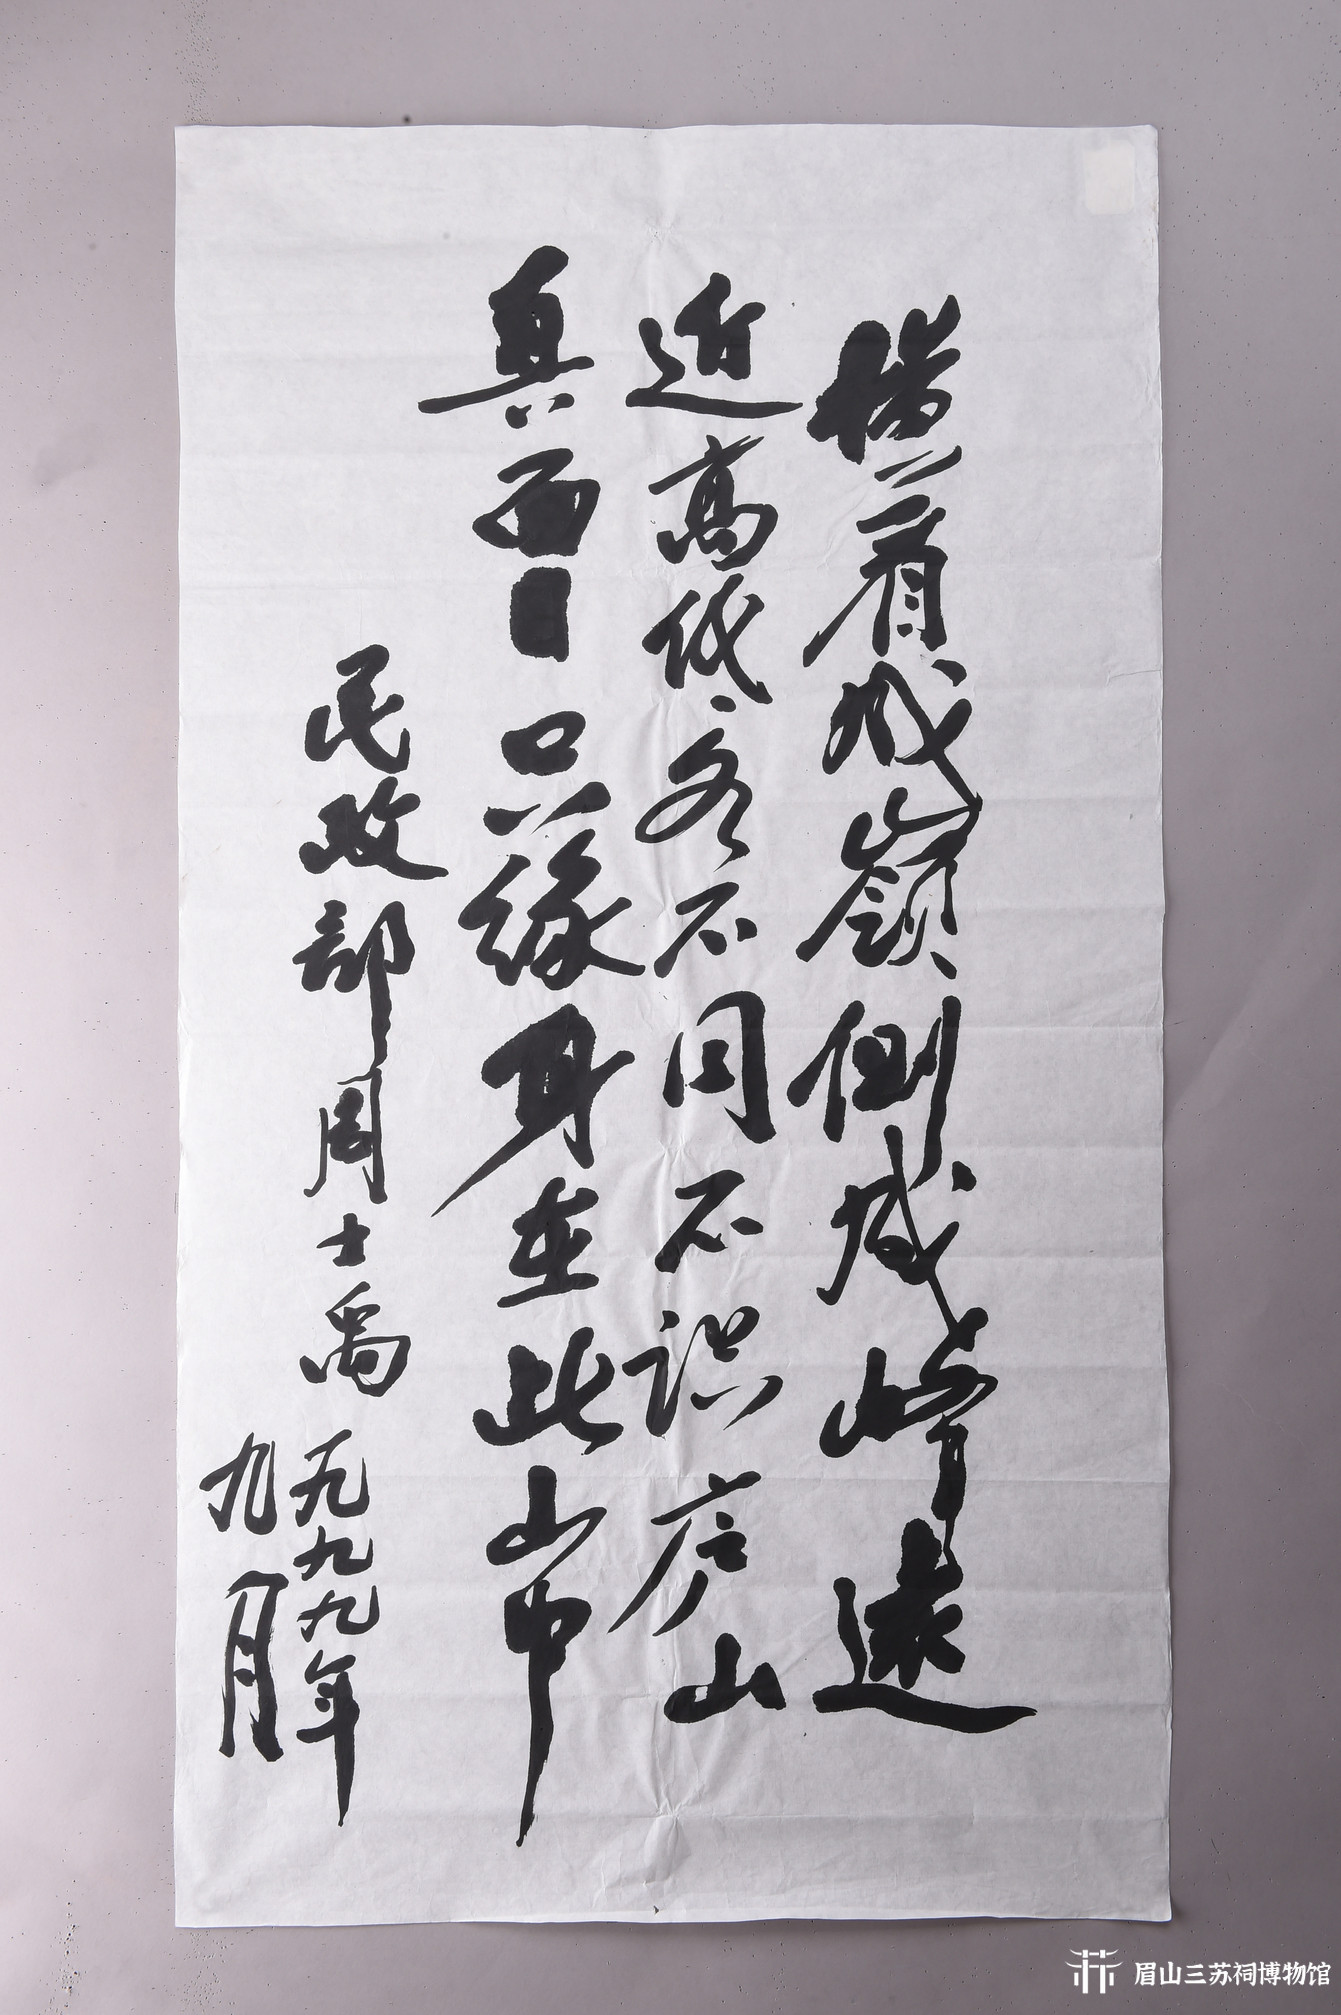 橫看成嶺側成峰遠
近高低各不同不识庐山
真面目只缘身在此山中
民政部周士禹
一九九九年
九月
眉山三苏祠博物馆